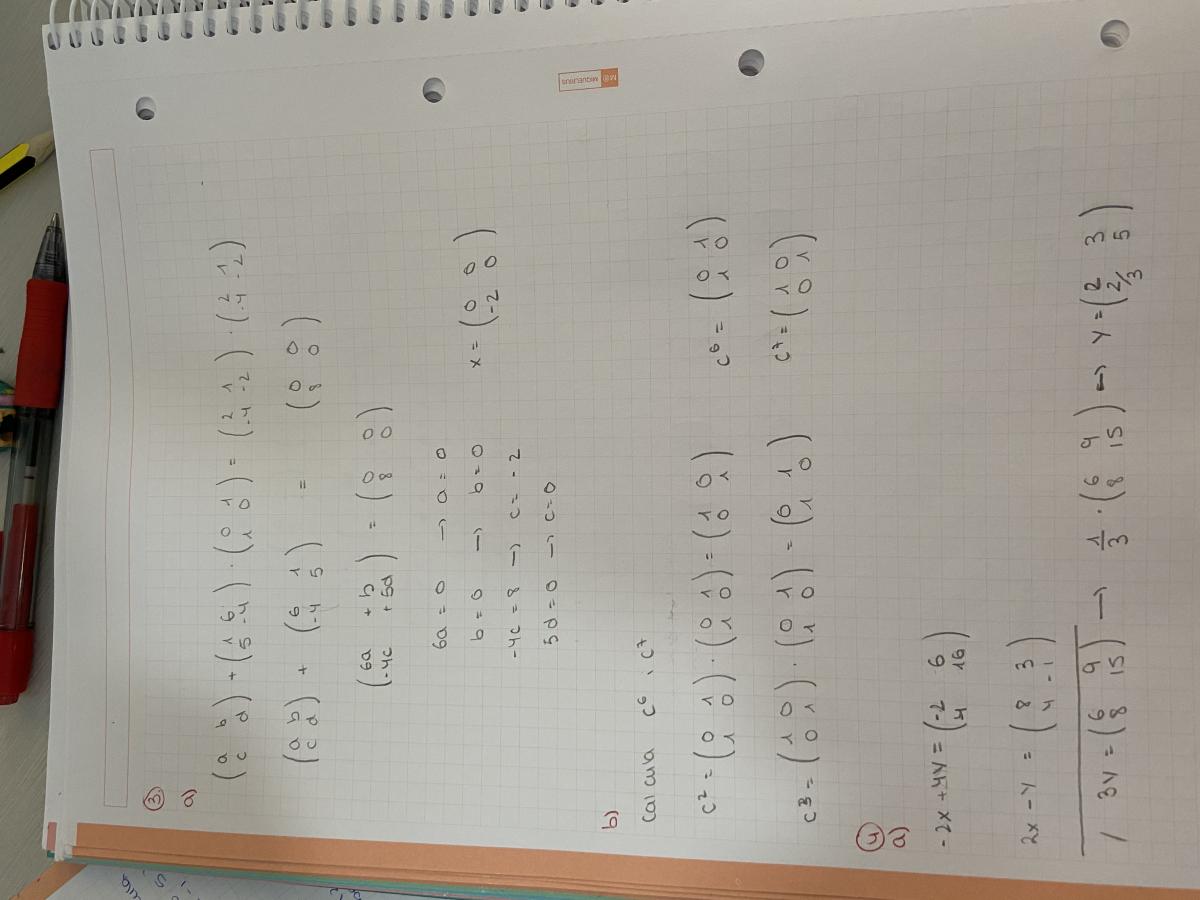 ③
a)
(a b / c d) + (1 6 / 5 -4) · (0 1 / 1 0) = (2 1 / -4 -2) · (2 1 / -4 -2)
(a b / c d) + (6 1 / -4 5) = (0 0 / 8 0)
(6a +b / -4c +5d) = (0 0 / 8 0)
6a = 0 → a = 0
b = 0 → b = 0
-4c = 8 → c = -2
5d = 0 → c = 0
x = (0 0 / -2 0)
b)
Calcula c⁶, c⁷
c² = (0 1 / 1 0) · (0 1 / 1 0) = (1 0 / 0 1)
c⁶ = (0 1 / 1 0)
c³ = (1 0 / 0 1) · (0 1 / 1 0) = (0 1 / 1 0)
c⁷ = (1 0 / 0 1)
④
a)
-2x + 4y = (-2 6 / 4 16)
2x - y = (8 3 / 4 -1)
/ 3y = (6 9 / 8 15) → 1/3 · (6 9 / 8 15) → y = (2 3 / 2/3 5)
MIQUELRIUS